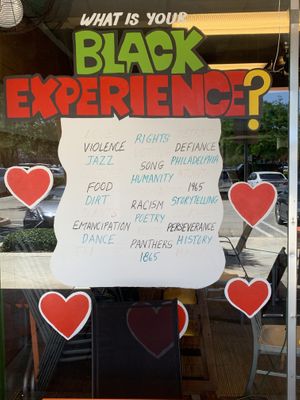 WHAT IS YOUR
BLACK
EXPERIENCE?
RIGHTS!
VIOLENCE
DEFIANCE
JAZZ
SONG
PHILADELPHIA
HUMANITY
FOOD
1965
DIRT
RACISM
STORYTELLING
POETRY
EMANCIPATION
PERSEVERANCE
DANCE
PANTHERS
HISTORY
1865